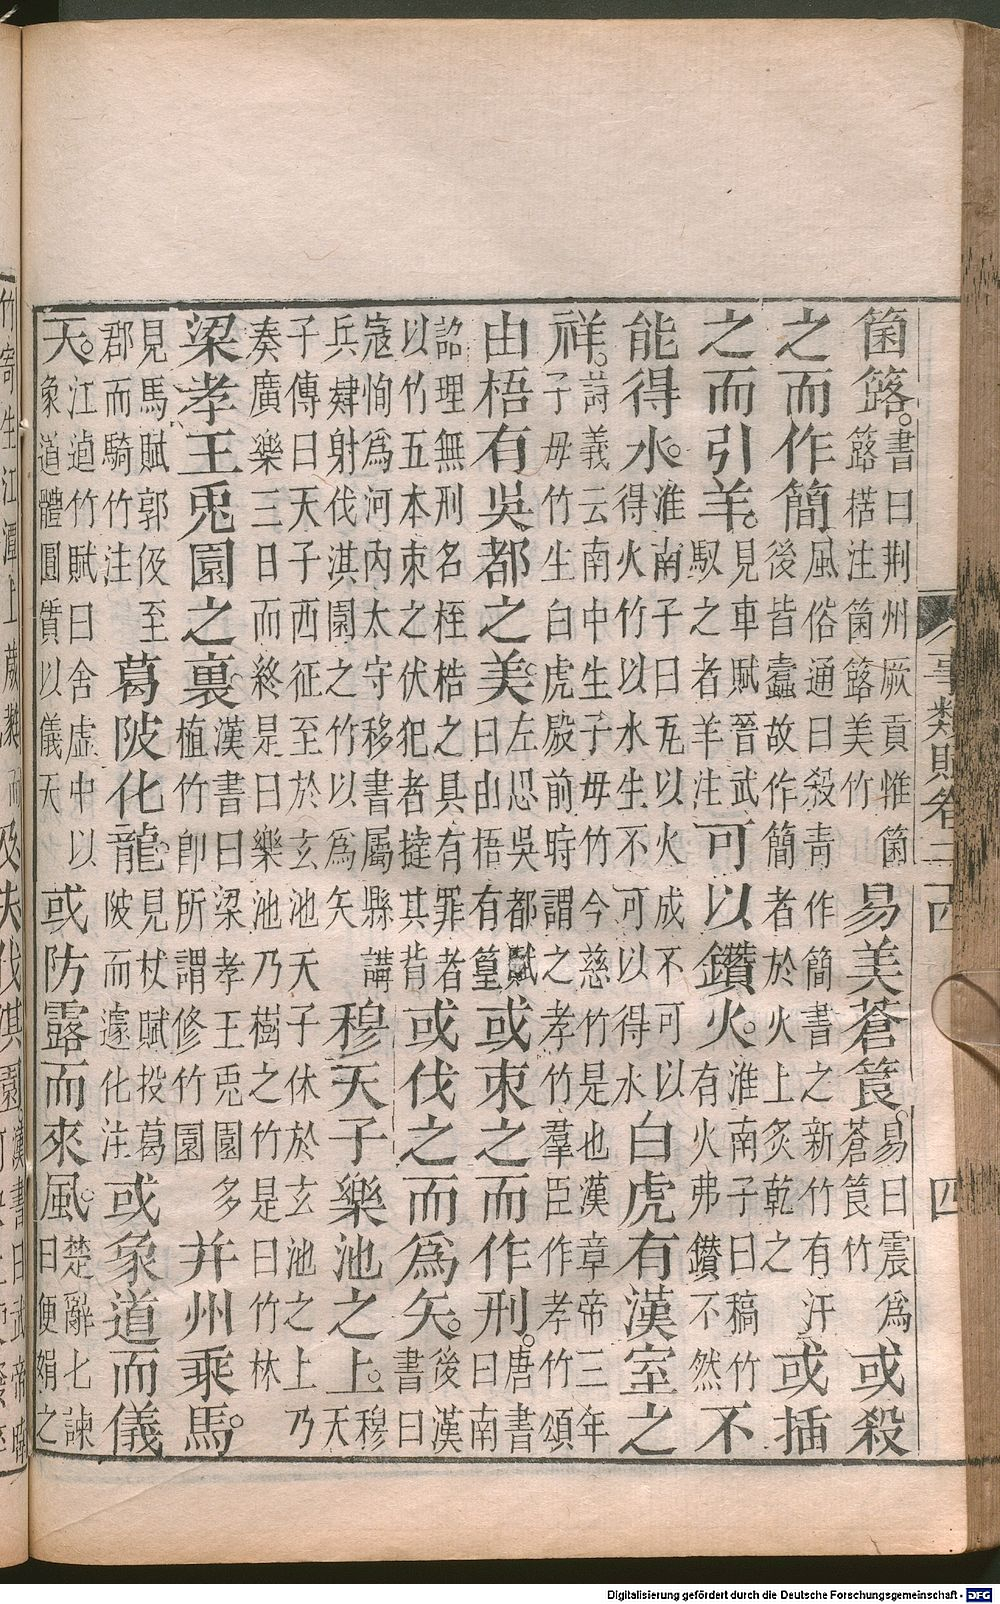 箘簬。書曰荆州厥貢惟箘簬楛注箘簬美竹易美蒼筤。易曰震爲蒼筤竹或殺
之而作簡風俗通曰殺青作簡書之新竹有汗後皆蠹故作簡者於火上炙乾之或插
之而引羊。見車賦晉武馭之者羊注可以鑽火。淮南子曰槁竹有火弗鑽不然不
能得水。淮南子曰瓦以火成不可以得火竹以水生不可以得水白虎有漢室之
祥。詩義云南中生子母竹今慈竹是也漢章帝三年子母竹生白虎殿前時謂之孝竹羣臣作孝竹頌
由梧有吳都之美。左思吳都賦曰由梧有篁或束之而作刑。唐書曰南
詔理無刑名桎梏之具有罪者以竹五本束之伏犯者撻其背或伐之而爲矢。後漢書曰
寇恂爲河內太守移書屬縣講兵肄射伐淇園之竹以爲矢穆天子樂池之上。穆天
子傳曰天子西征至於玄池天子休於玄池之上乃奏廣樂三日而終是曰樂池乃樹之竹是曰竹林
梁孝王兎園之裏。漢書曰梁孝王兎園多植竹卽所謂修竹園并州乘馬。
見馬賦郭伋至郡而騎竹注葛陂化龍。見杖賦投葛陂而遽化注或象道而儀
天。江逌竹賦曰含虛中以象道體圓質以儀天或防露而來風。楚辭七諫曰便娟之
竹寄生江潭上葳蕤而
Digitalisierung gefördert durch die Deutsche Forschungsgemeinschaft - DFG